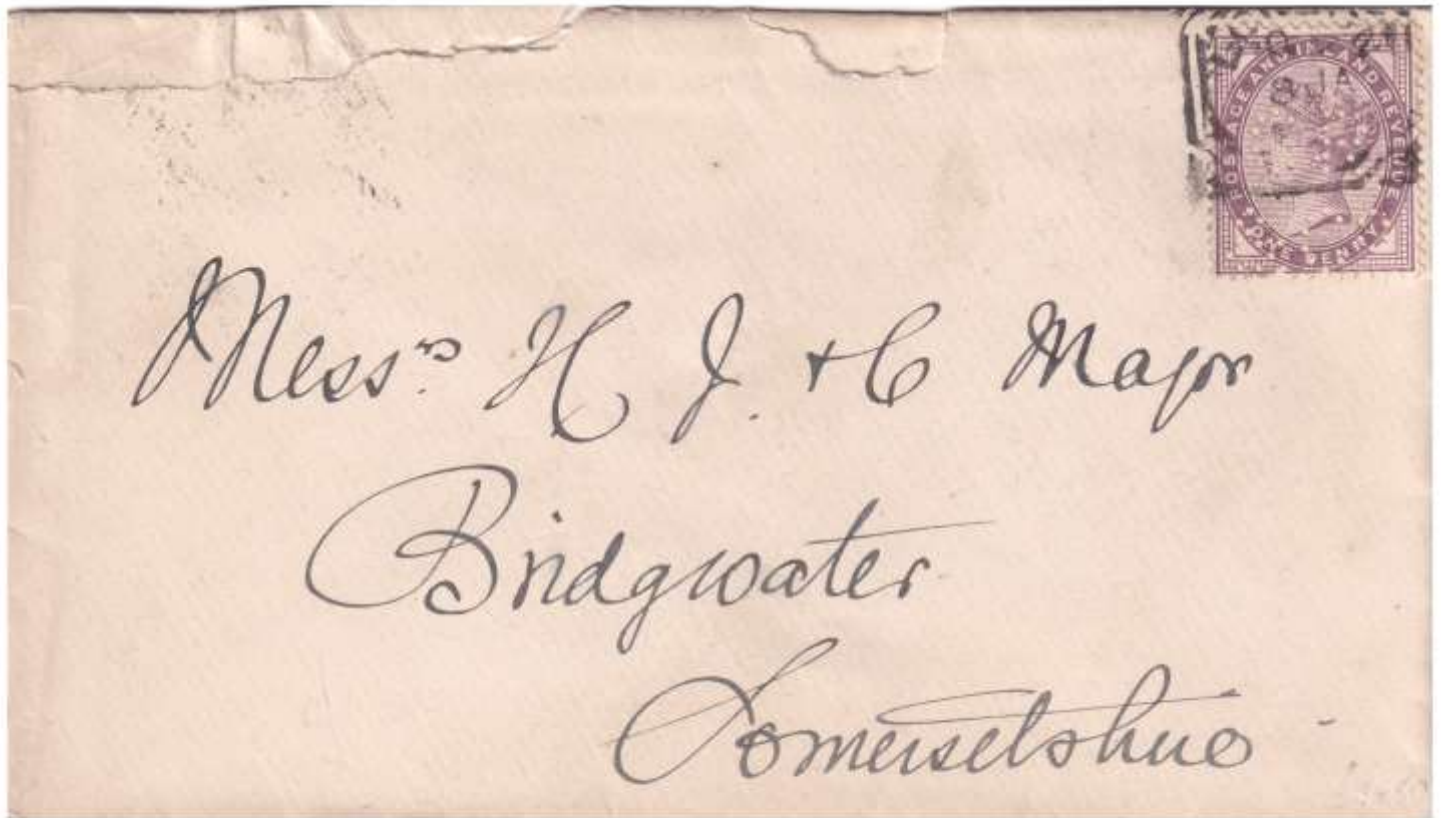 POSTAGE AND INLAND REVENUE
ONE PENNY
8 JA
Mess.rs H J. & C Major
Bridgwater
Somersetshire